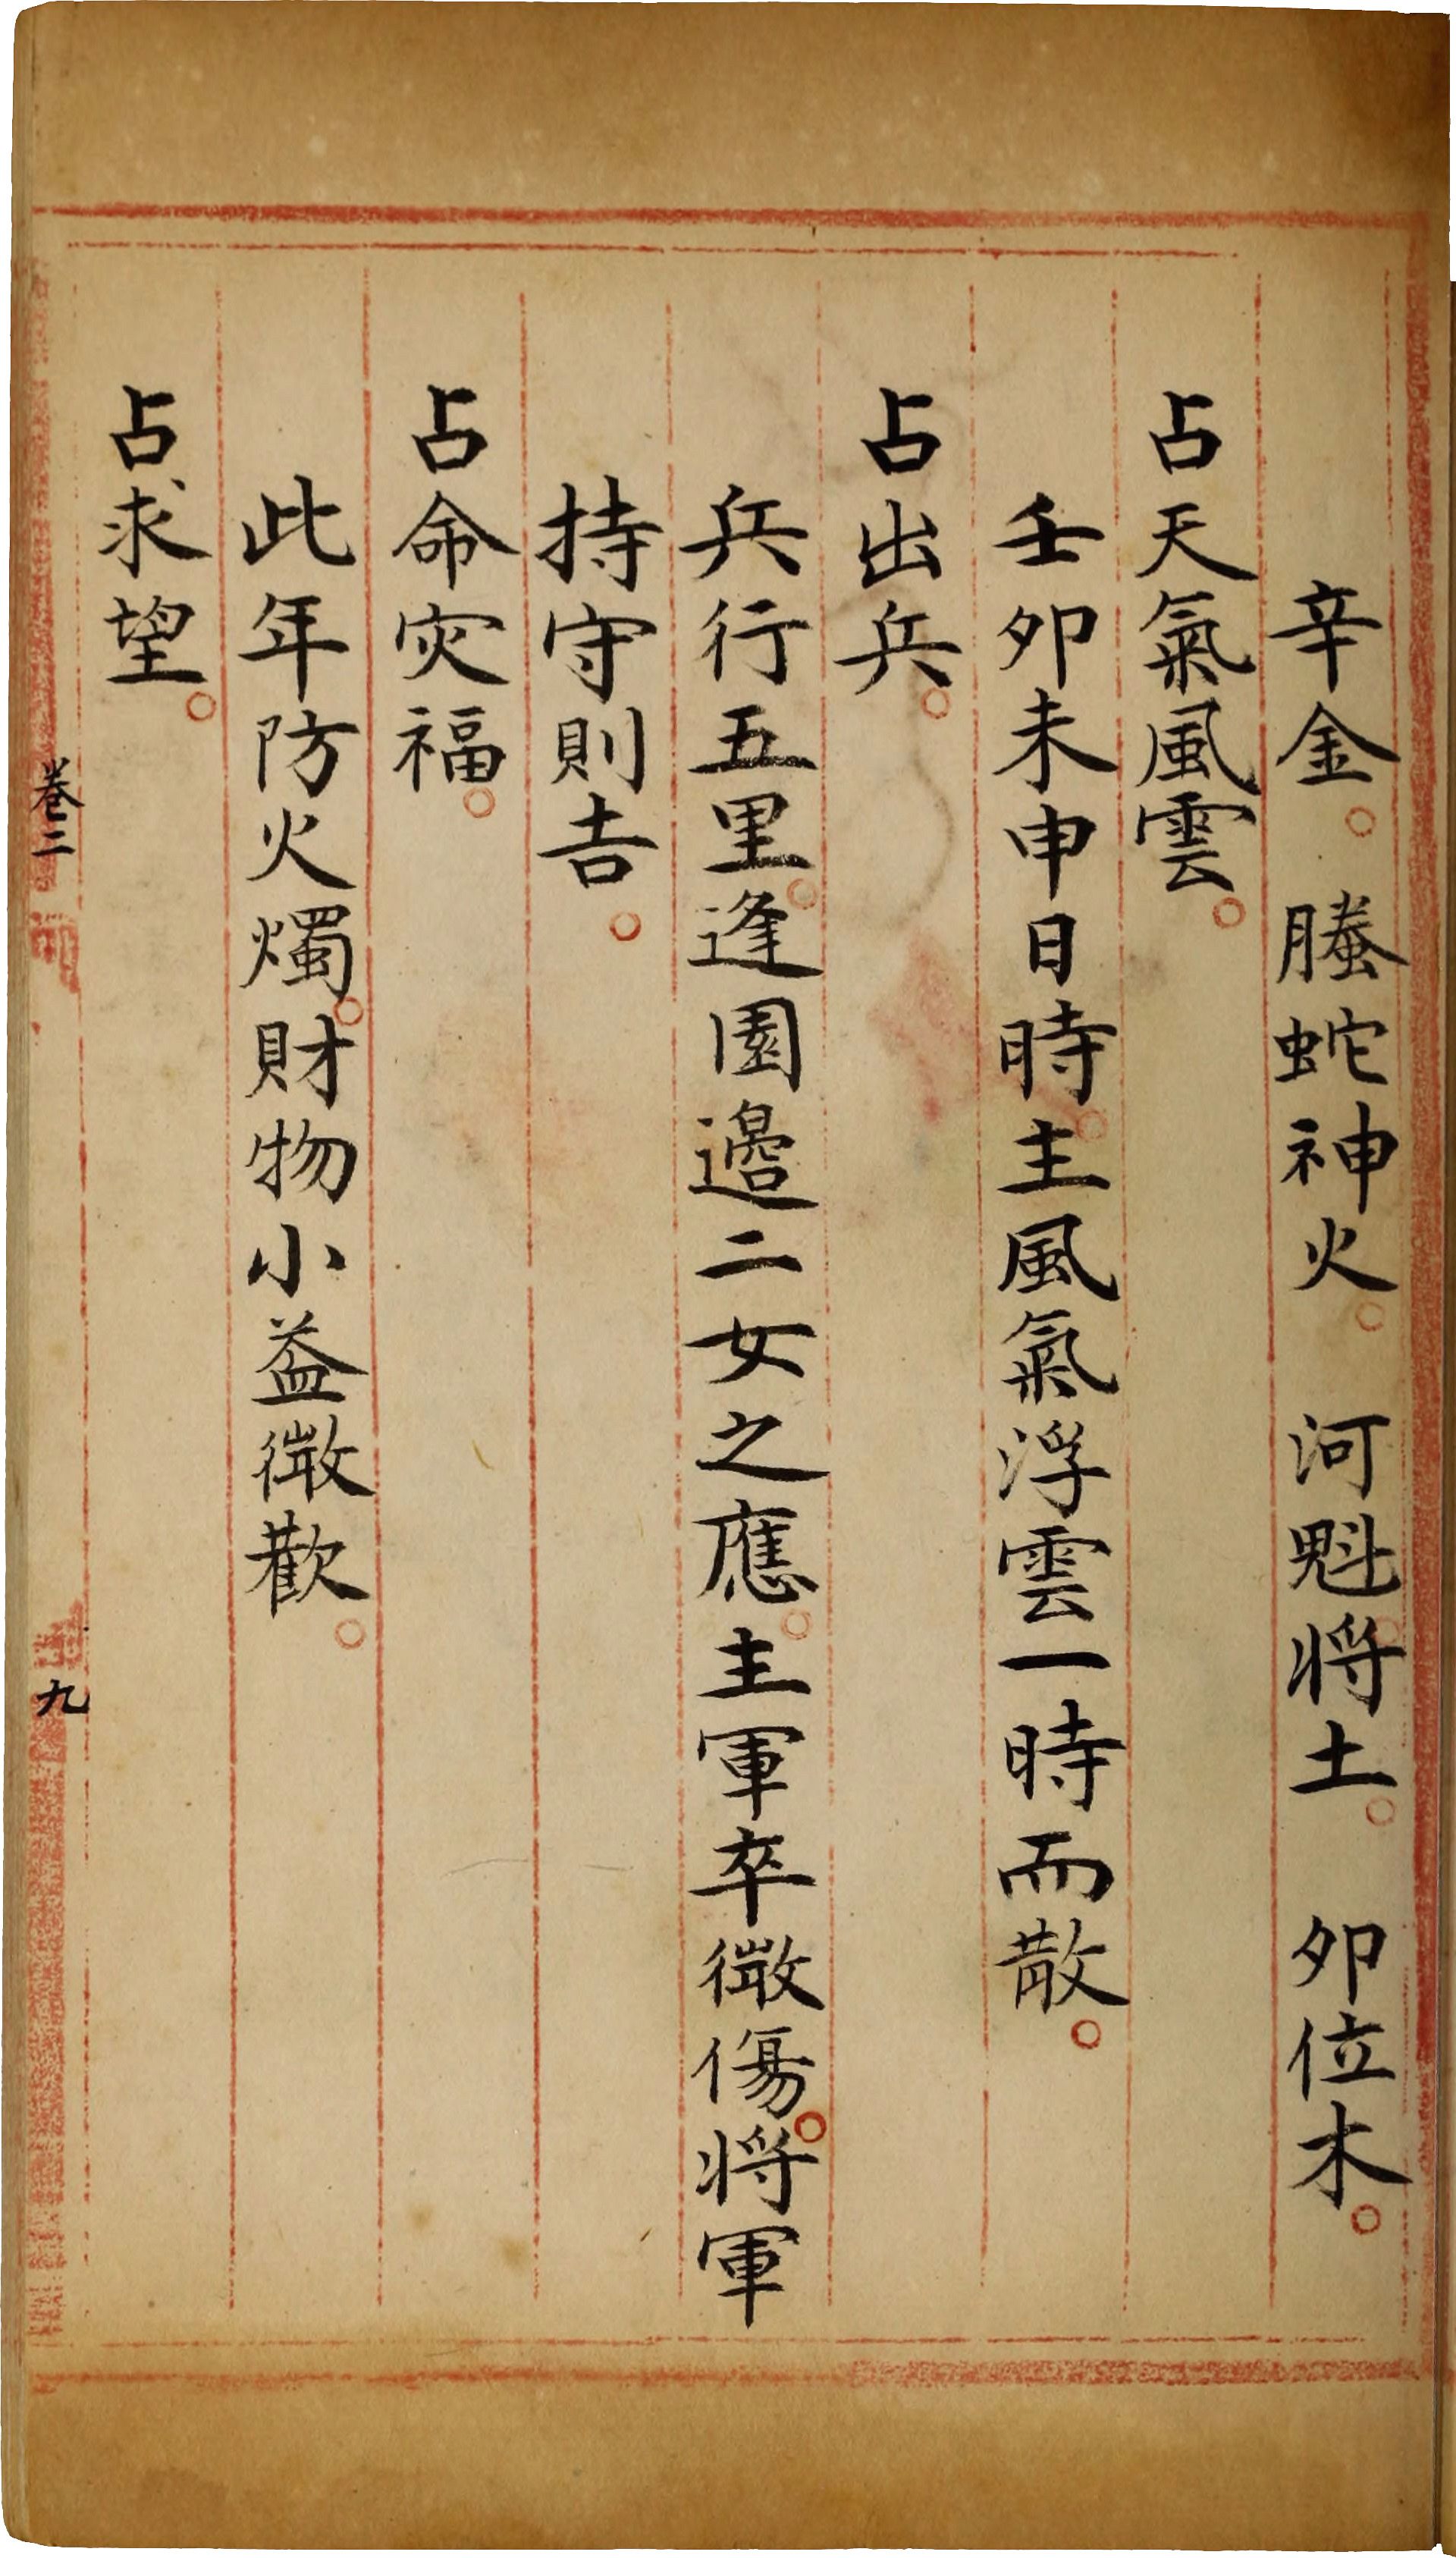 辛金。螣蛇神火。河魁将土。夘位木。
占天氣風雲。
壬夘未申日時。主風氣浮雲一時而散。
占出兵。
兵行五里。逢園邉二女之應。主軍卒微傷。将軍
持守則吉。
占命灾福。
此年防火燭。財物小益微歡。
占求望。
卷三
九